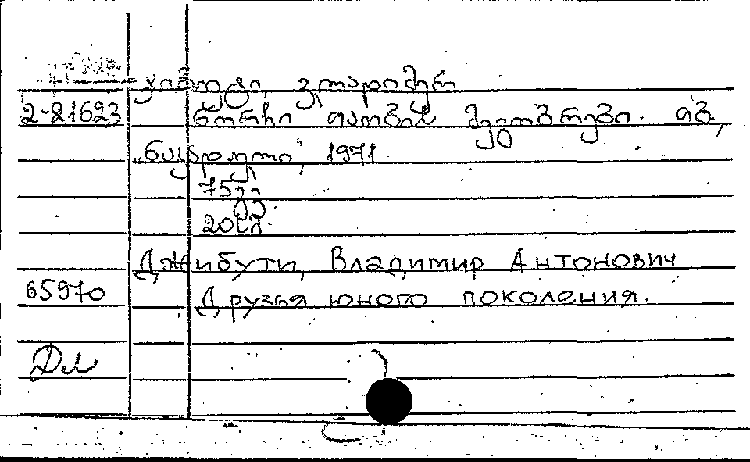 ჯიბუტი, ვლადიმერ
2-21623 ნორჩი თაობის მეგობრები. თბ.,
„ნაკადული", 1971
75გვ.
20სმ.
Джибути, Владимир Антонович
65970 Друзья юного поколения.